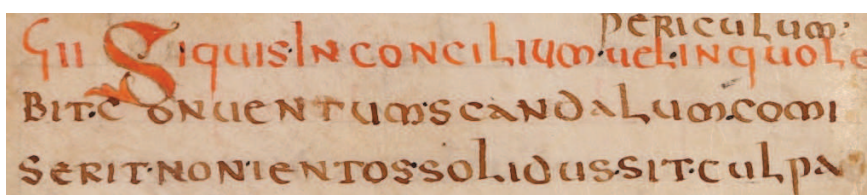 PERICULUM:
ϚII SIQUIS·INCONCILIUM·UELINQUOLE
BIT·CONUENTUM·SCANDALUM·COMI
SERIT·NONIENTOS·SOLIDUS·SIT·CULPA